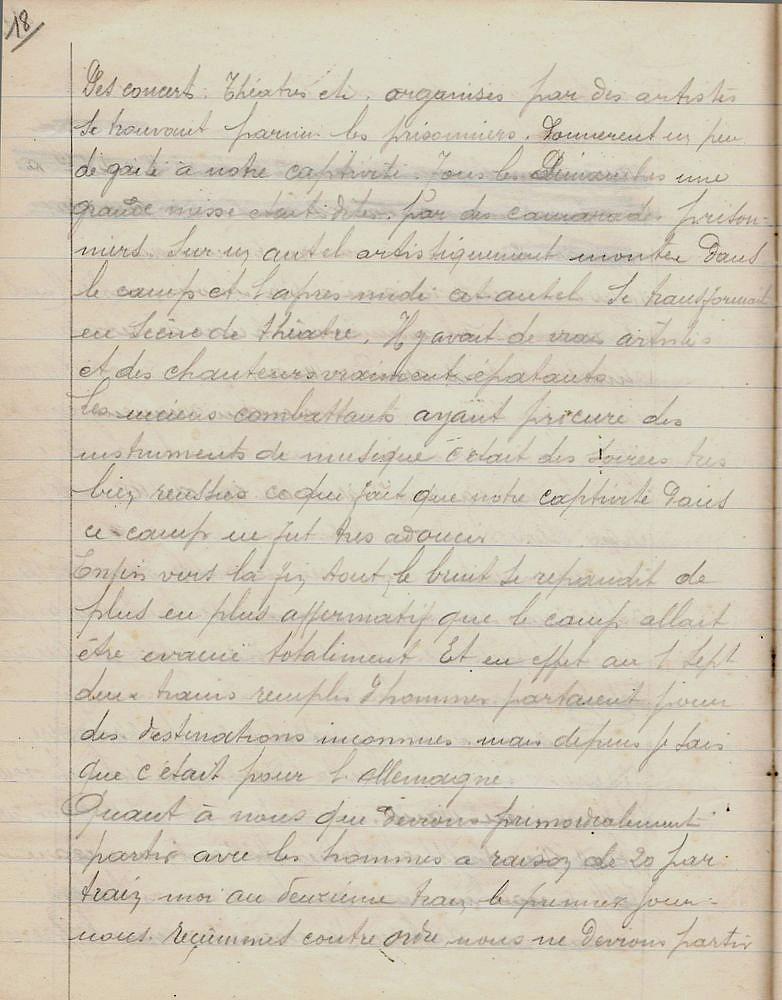 18
Des concert. Théatres etc. organisés par des artistes
se trouvant parmi les prisonniers. Donnerent un peu
de gaité à notre captivité. Tous les Dimanches une
grande messe était dites. Par des camarades prison-
niers. Sur un autel artistiquement montée dans
le camp et l'apres midi cet autel se transformait
en scène de théatre. Il y avait de vrais artistes
et des chanteurs vraiment épatants
Les anciens combattants ayant procuré des
instruments de musique c'était des soirées tres
bien reussies ce qui fait que notre captivité dans
ce camp en fut tres adoucie
Enfin vers la fin aout, le bruit se repandit de
plus en plus affermatif que le camp allait
être evacué totaliment Et en effet au 1 Sept
deux trains remplis d'hommes partaient pour
des destinations inconnues. mais depuis je sais
que c'était pour l'Allemagne.
Quant à nous que devions primordialement
partir avec les hommes a raison de 20 par
train, moi au deuxième train, le premier jour-
nous reçumes contre ordre nous ne devions partir